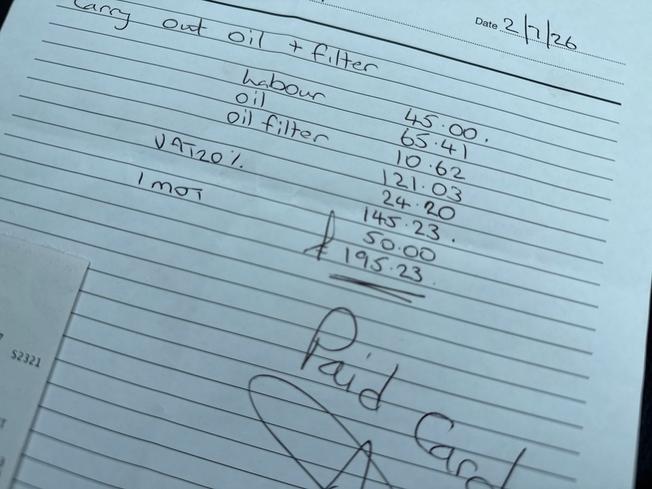 Date 2/7/26
Carry out oil + filter
Labour 45.00.
oil 65.41
oil filter 10.62
121.03
VAT20% 24.20
145.23.
1 MOT 50.00
£ 195.23.
Paid Card
S2321